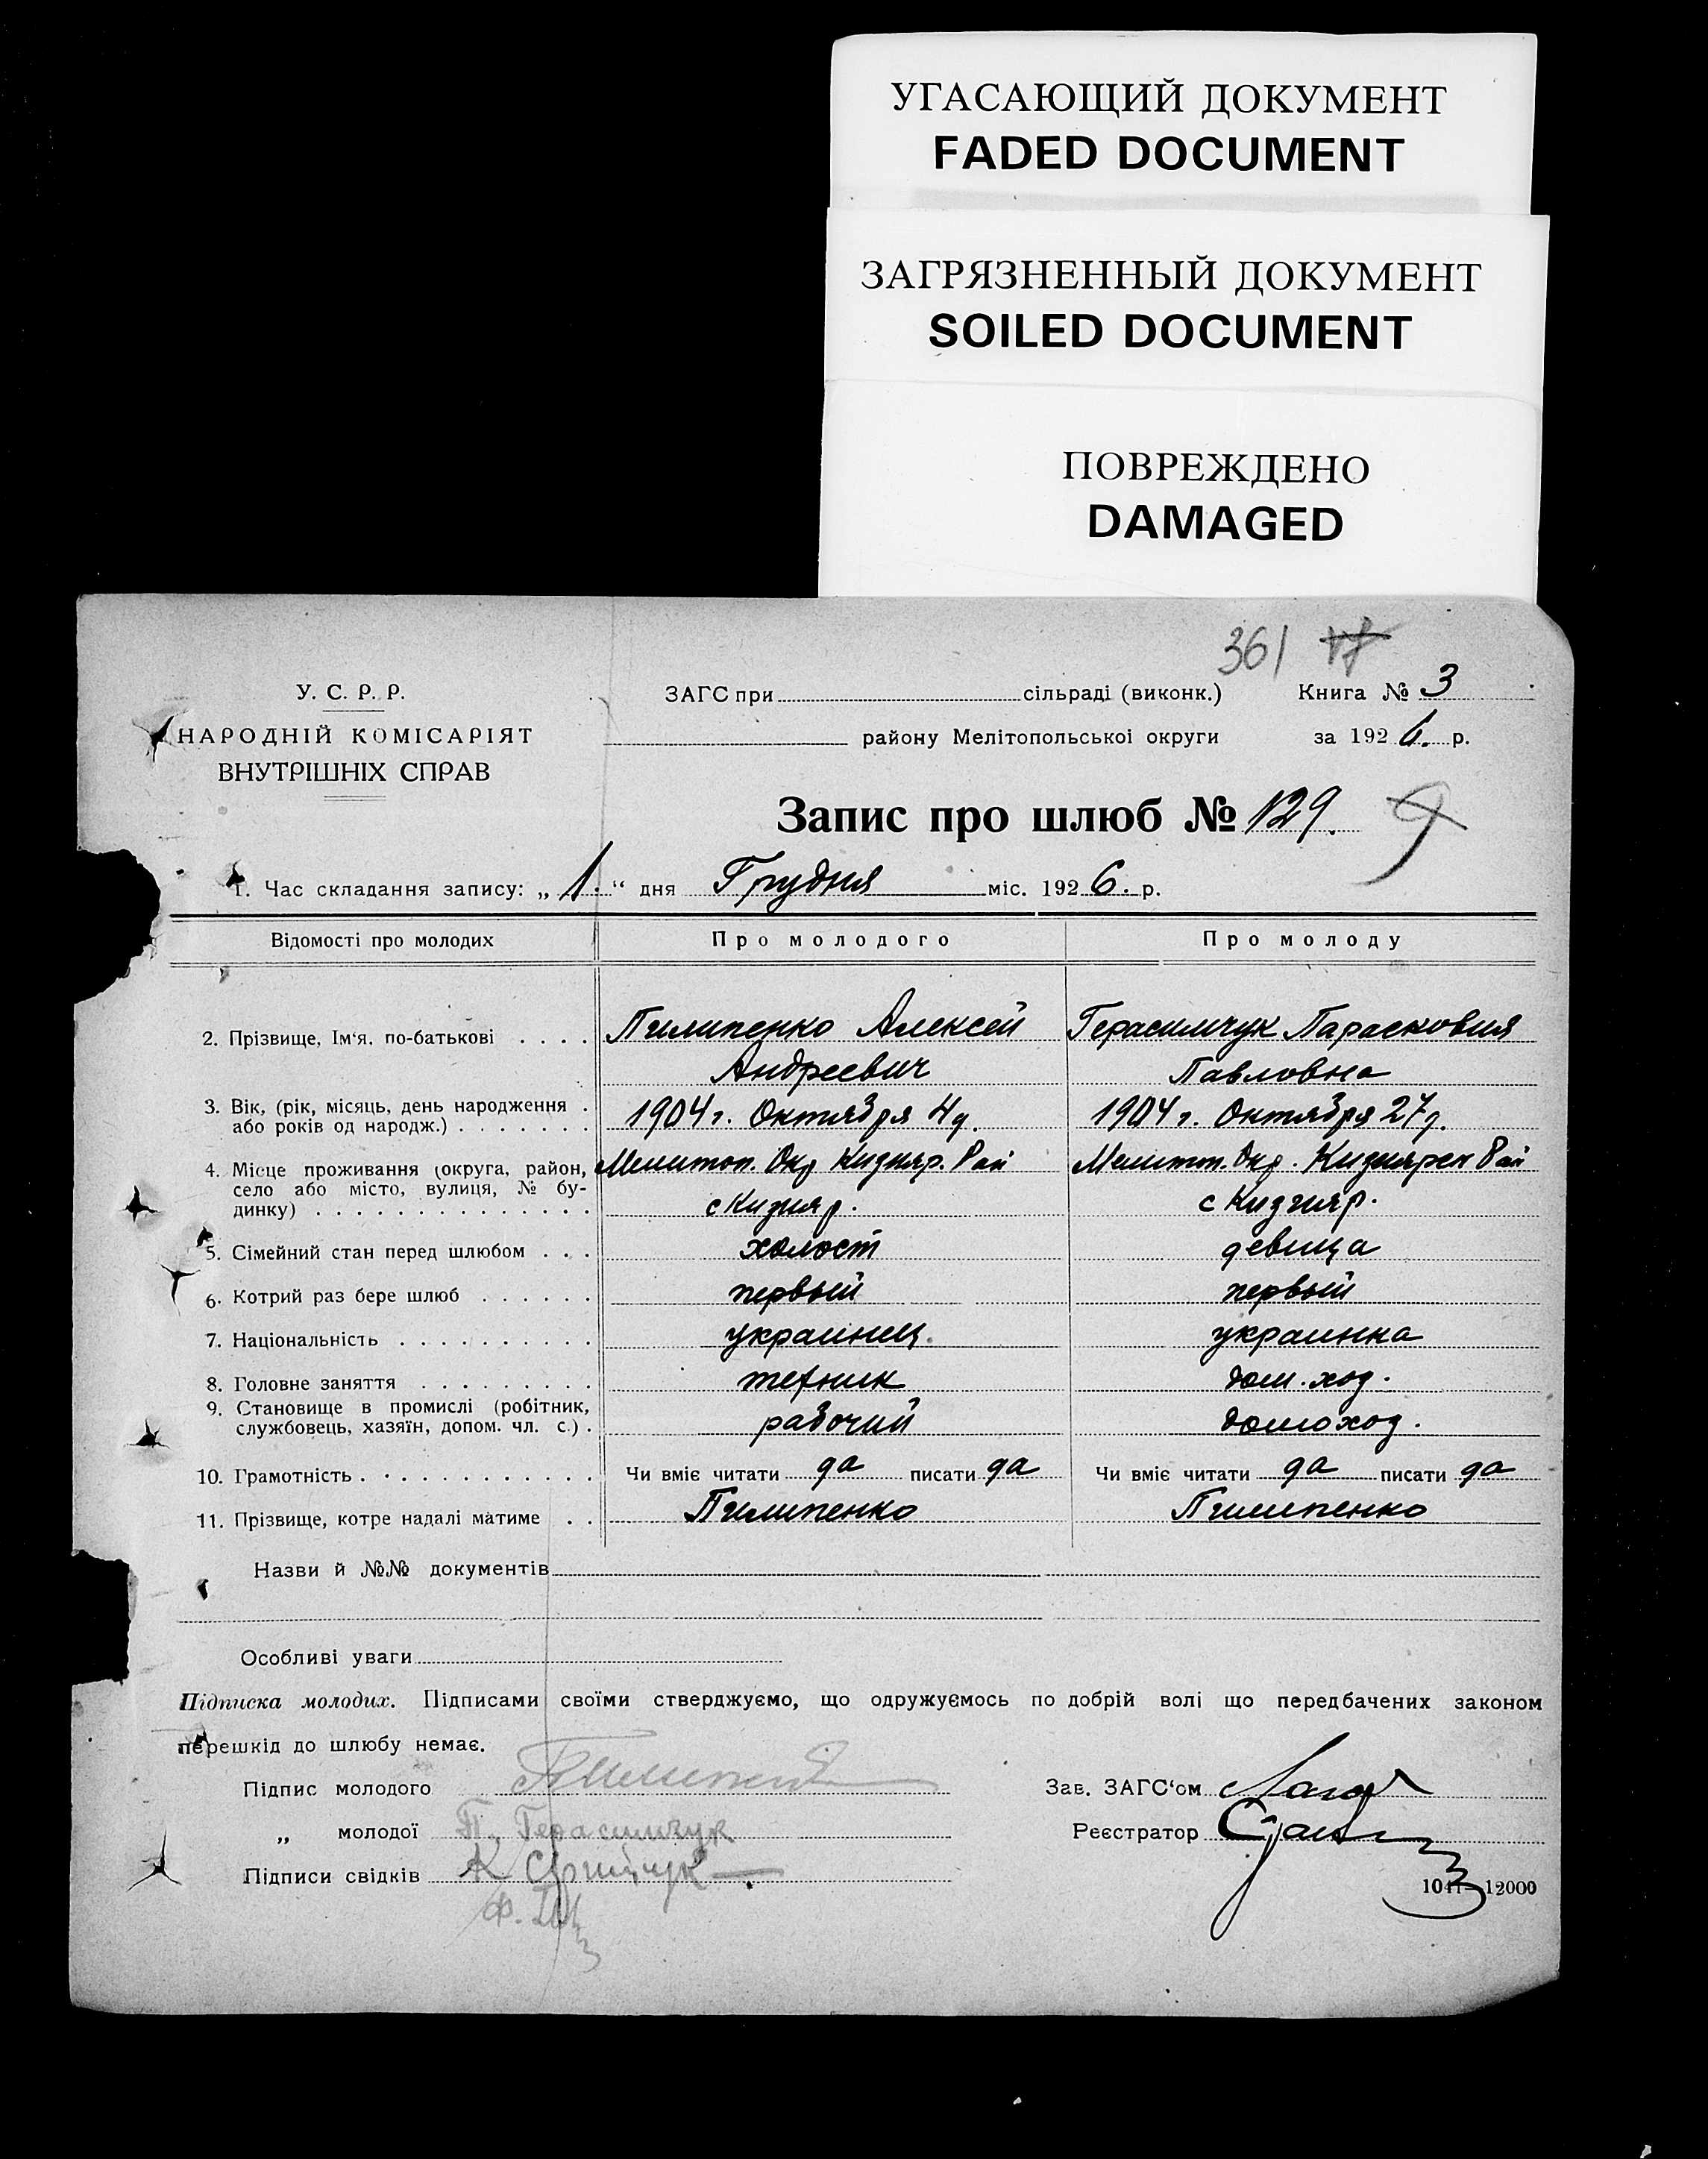 УГАСАЮЩИЙ ДОКУМЕНТ
FADED DOCUMENT
ЗАГРЯЗНЕННЫЙ ДОКУМЕНТ
SOILED DOCUMENT
ПОВРЕЖДЕНО
DAMAGED
361 17
У. С. Р. Р.
НАРОДНІЙ КОМІСАРІЯТ
ВНУТРІШНІХ СПРАВ
ЗАГС при сільраді (виконк.) Книга № 3
району Мелітопольської округи за 1926. р.
Запис про шлюб № 129. 9
1. Час складання запису: „1.“ дня Грудня міс. 1926. р.
Відомості про молодих Про молодого Про молоду
2. Прізвище, Ім‘я, по-батькові . . . . Пилипенко Алексей Герасимчук Парасковия
Андреевич Павловна
3. Вік, (рік, місяць, день народження . 1904 г. Октября 4 д. 1904 г. Октября 27 д.
або років од народж.) . . . . . . .
4. Місце проживання (округа, район, Мелитоп. Окр Кизияр. Рай Мелитоп. Окр. Кизиярск Рай
село або місто, вулиця, № бу-
динку) . . . . . . . . . . . . . . с Кизияр. с Кизияр.
5. Сімейний стан перед шлюбом . . . холост девица
6. Котрий раз бере шлюб . . . . . . первый первый
7. Національність . . . . . . . . . . украинец. украинка
8. Головне заняття . . . . . . . . . техник дом. хоз.
9. Становище в промислі (робітник,
службовець, хазяїн, допом. чл. с.) . рабочий домохоз.
10. Грамотність . . . . . . . . . . . . Чи вміє читати да писати да Чи вміє читати да писати да
11. Прізвище, котре надалі матиме . . Пилипенко Пилипенко
Назви й №№ документів
Особливі уваги
Підписка молодих. Підписами своїми стверджуємо, що одружуємось по добрій волі що передбачених законом
перешкід до шлюбу немає.
Підпис молодого Пилипенко Зав. ЗАГС‘ом
„ молодої П. Герасимчук Реєстратор
Підписи свідків К
Ф.
1041—12000